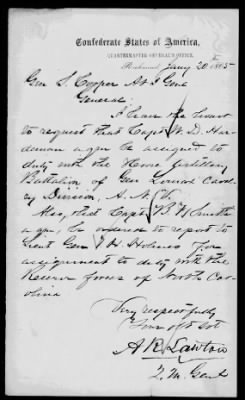 Confederate States of America,
QUARTERMASTER GENERAL'S OFFICE,
Richmond, Jany 20th 1865
Gen S. Cooper A & I Genl
General
I have the honor
to request that Capt W. D. Har-
deman a qm be assigned to
duty with the Horse Artillery
Battalion of Gen Lomax Caval-
ry Division, A. N. V.
Also, that Capt B H Smith
a qm, be ordered to report to
Lieut Gen T H Holmes for
assignment to duty with the
Reserve forces of North Ca-
rolina
Very respectfully
Your obt Svt
A R Lawton
Q. M. Genl